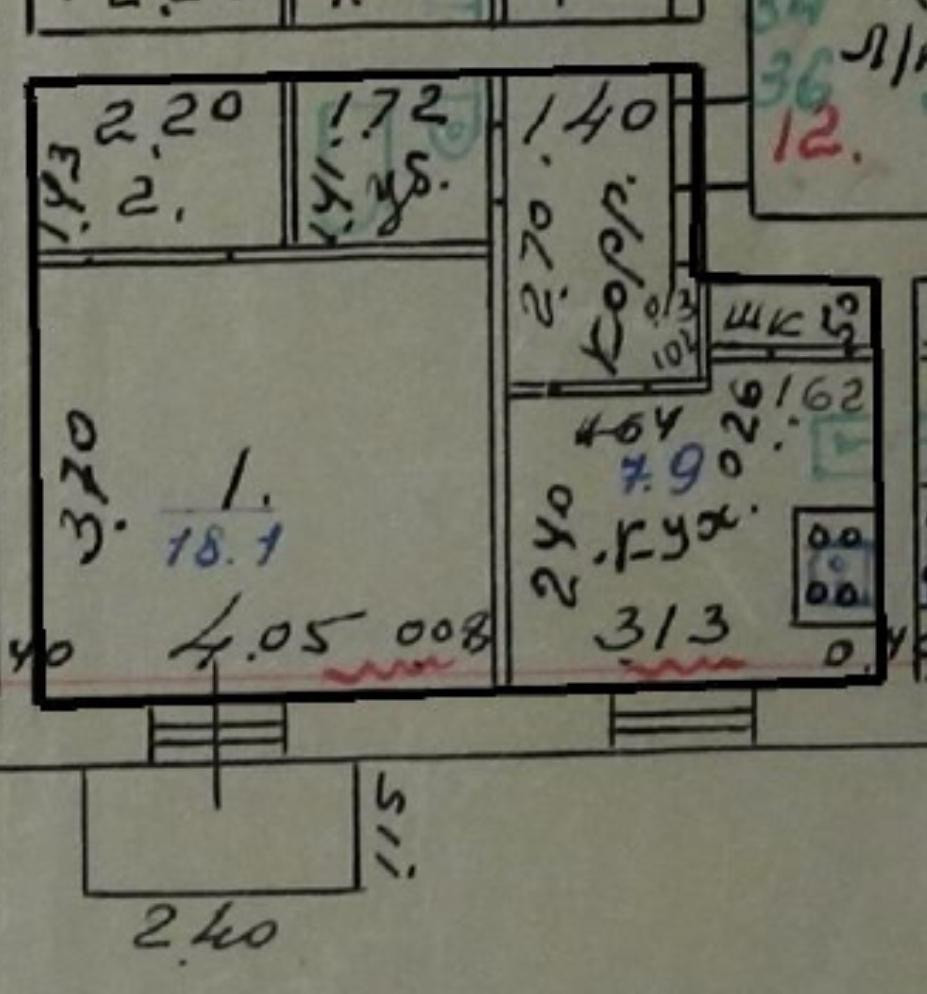 2.20
1.72
1.40
36
12.
1.43
2.
1.41
уб.
2.70
Кор.
0,13
102
шк
50
3.70
1.
18.1
1.62
0.26
7.9
2.40
кух.
40
4.05
008
3/3
0.4
1.15
2.40